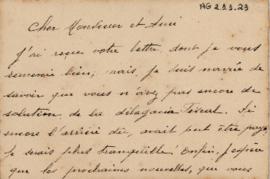 AG 2.9.1.23
Cher Monsieur et Ami
J'ai reçue votre lettre, dont je vous
remercie bien, mais, je suis navrée de
savoir que vous n'avez pas encore de
solution, de
encore l'arriéré du, avait peut être
je serais plus tranquille! Enfin, j'espère
que les prochaines nouvelles, que vous